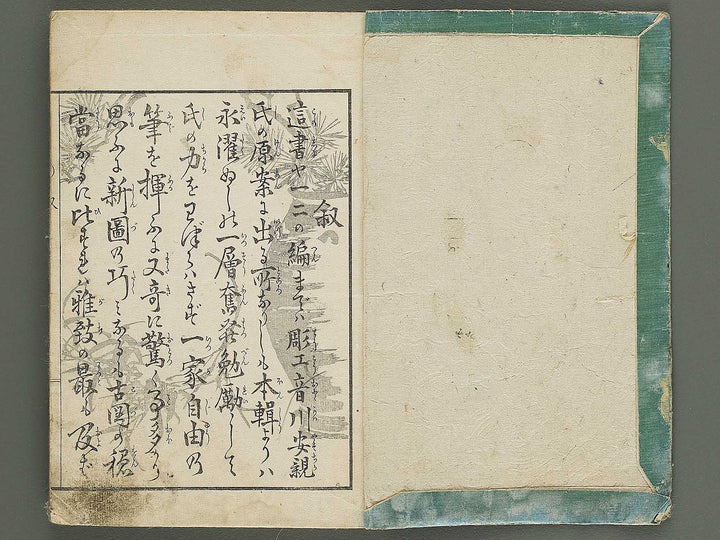 叙
這書や一二の編までハ彫工音川安親
氏の原案に出る所なりしも本輯よりハ
永濯ぬしの一層奮発勉励して
氏の力をとぼくハさず一家自由の
筆を揮ふに又奇に驚く事多かり
思ふに新圖の巧ミなるも古圖の穏
當なるに比すれハ雅致の最も及ず